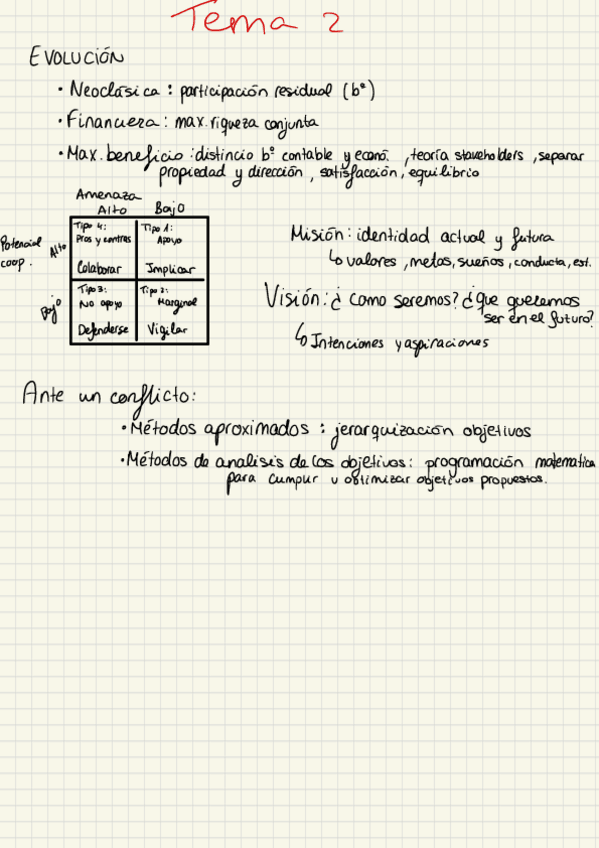 Tema 2
EVOLUCIÓN
• Neoclásica : participación residual (bº)
• Financiera : max. riqueza conjunta
• Max. beneficio : distincio bº contable y econó. , teoría stakeholders , separar
propiedad y dirección , satisfacción, equilibrio
Amenaza
Alto Bajo
Potencial coop.
Alto
Tipo 4: Pros y contras
Colaborar
Tipo 1: Apoyo
Implicar
Bajo
Tipo 3: No apoyo
Defenderse
Tipo 2: Marginal
Vigilar
Misión : identidad actual y futura
↳ valores , metas, sueños , conducta, est.
Visión : ¿ como seremos? ¿que queremos
ser en el futuro?
↳ Intenciones y aspiraciones
Ante un conflicto:
• Métodos aproximados : jerarquización objetivos
• Métodos de analisis de los objetivos : programación matematica
para cumplir u optimizar objetivos propuestos.